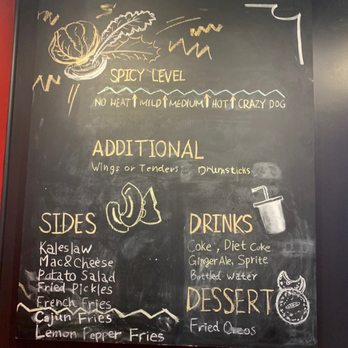 SPICY LEVEL
NO HEAT ↑ MILD ↑ MEDIUM ↑ HOT ↑ CRAZY DOG
ADDITIONAL
Wings or Tenders Drumsticks
SIDES
Kaleslaw
Mac & Cheese
Potato Salad
Fried Pickles
French Fries
Cajun Fries
Lemon Pepper Fries
DRINKS
Coke, Diet Coke
Ginger Ale, Sprite
Bottled Water
DESSERT
Fried Oreos